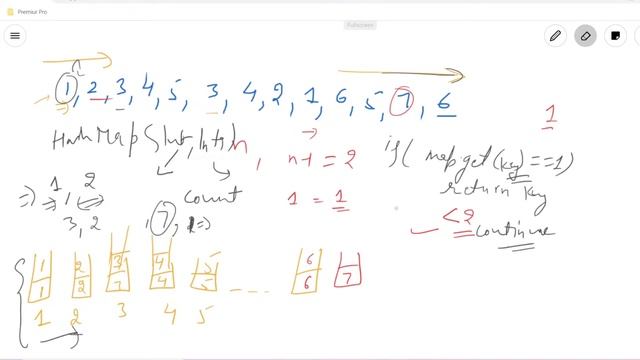 Premiur Pro
Fullscreen
1, 2, 3, 4, 5, 3, 4, 2, 1, 6, 5, 7, 6
1
HashMap<Int, Int>
n, n+1 = 2
if(map.get(key)==1)
return key
=> 1, 2
count
1 = 1
3, 2
, 7, 1=>
<2 continue
1 2 3 4 5 6
1 2 3 4 5 --- 6 7
1 2 3 4 5